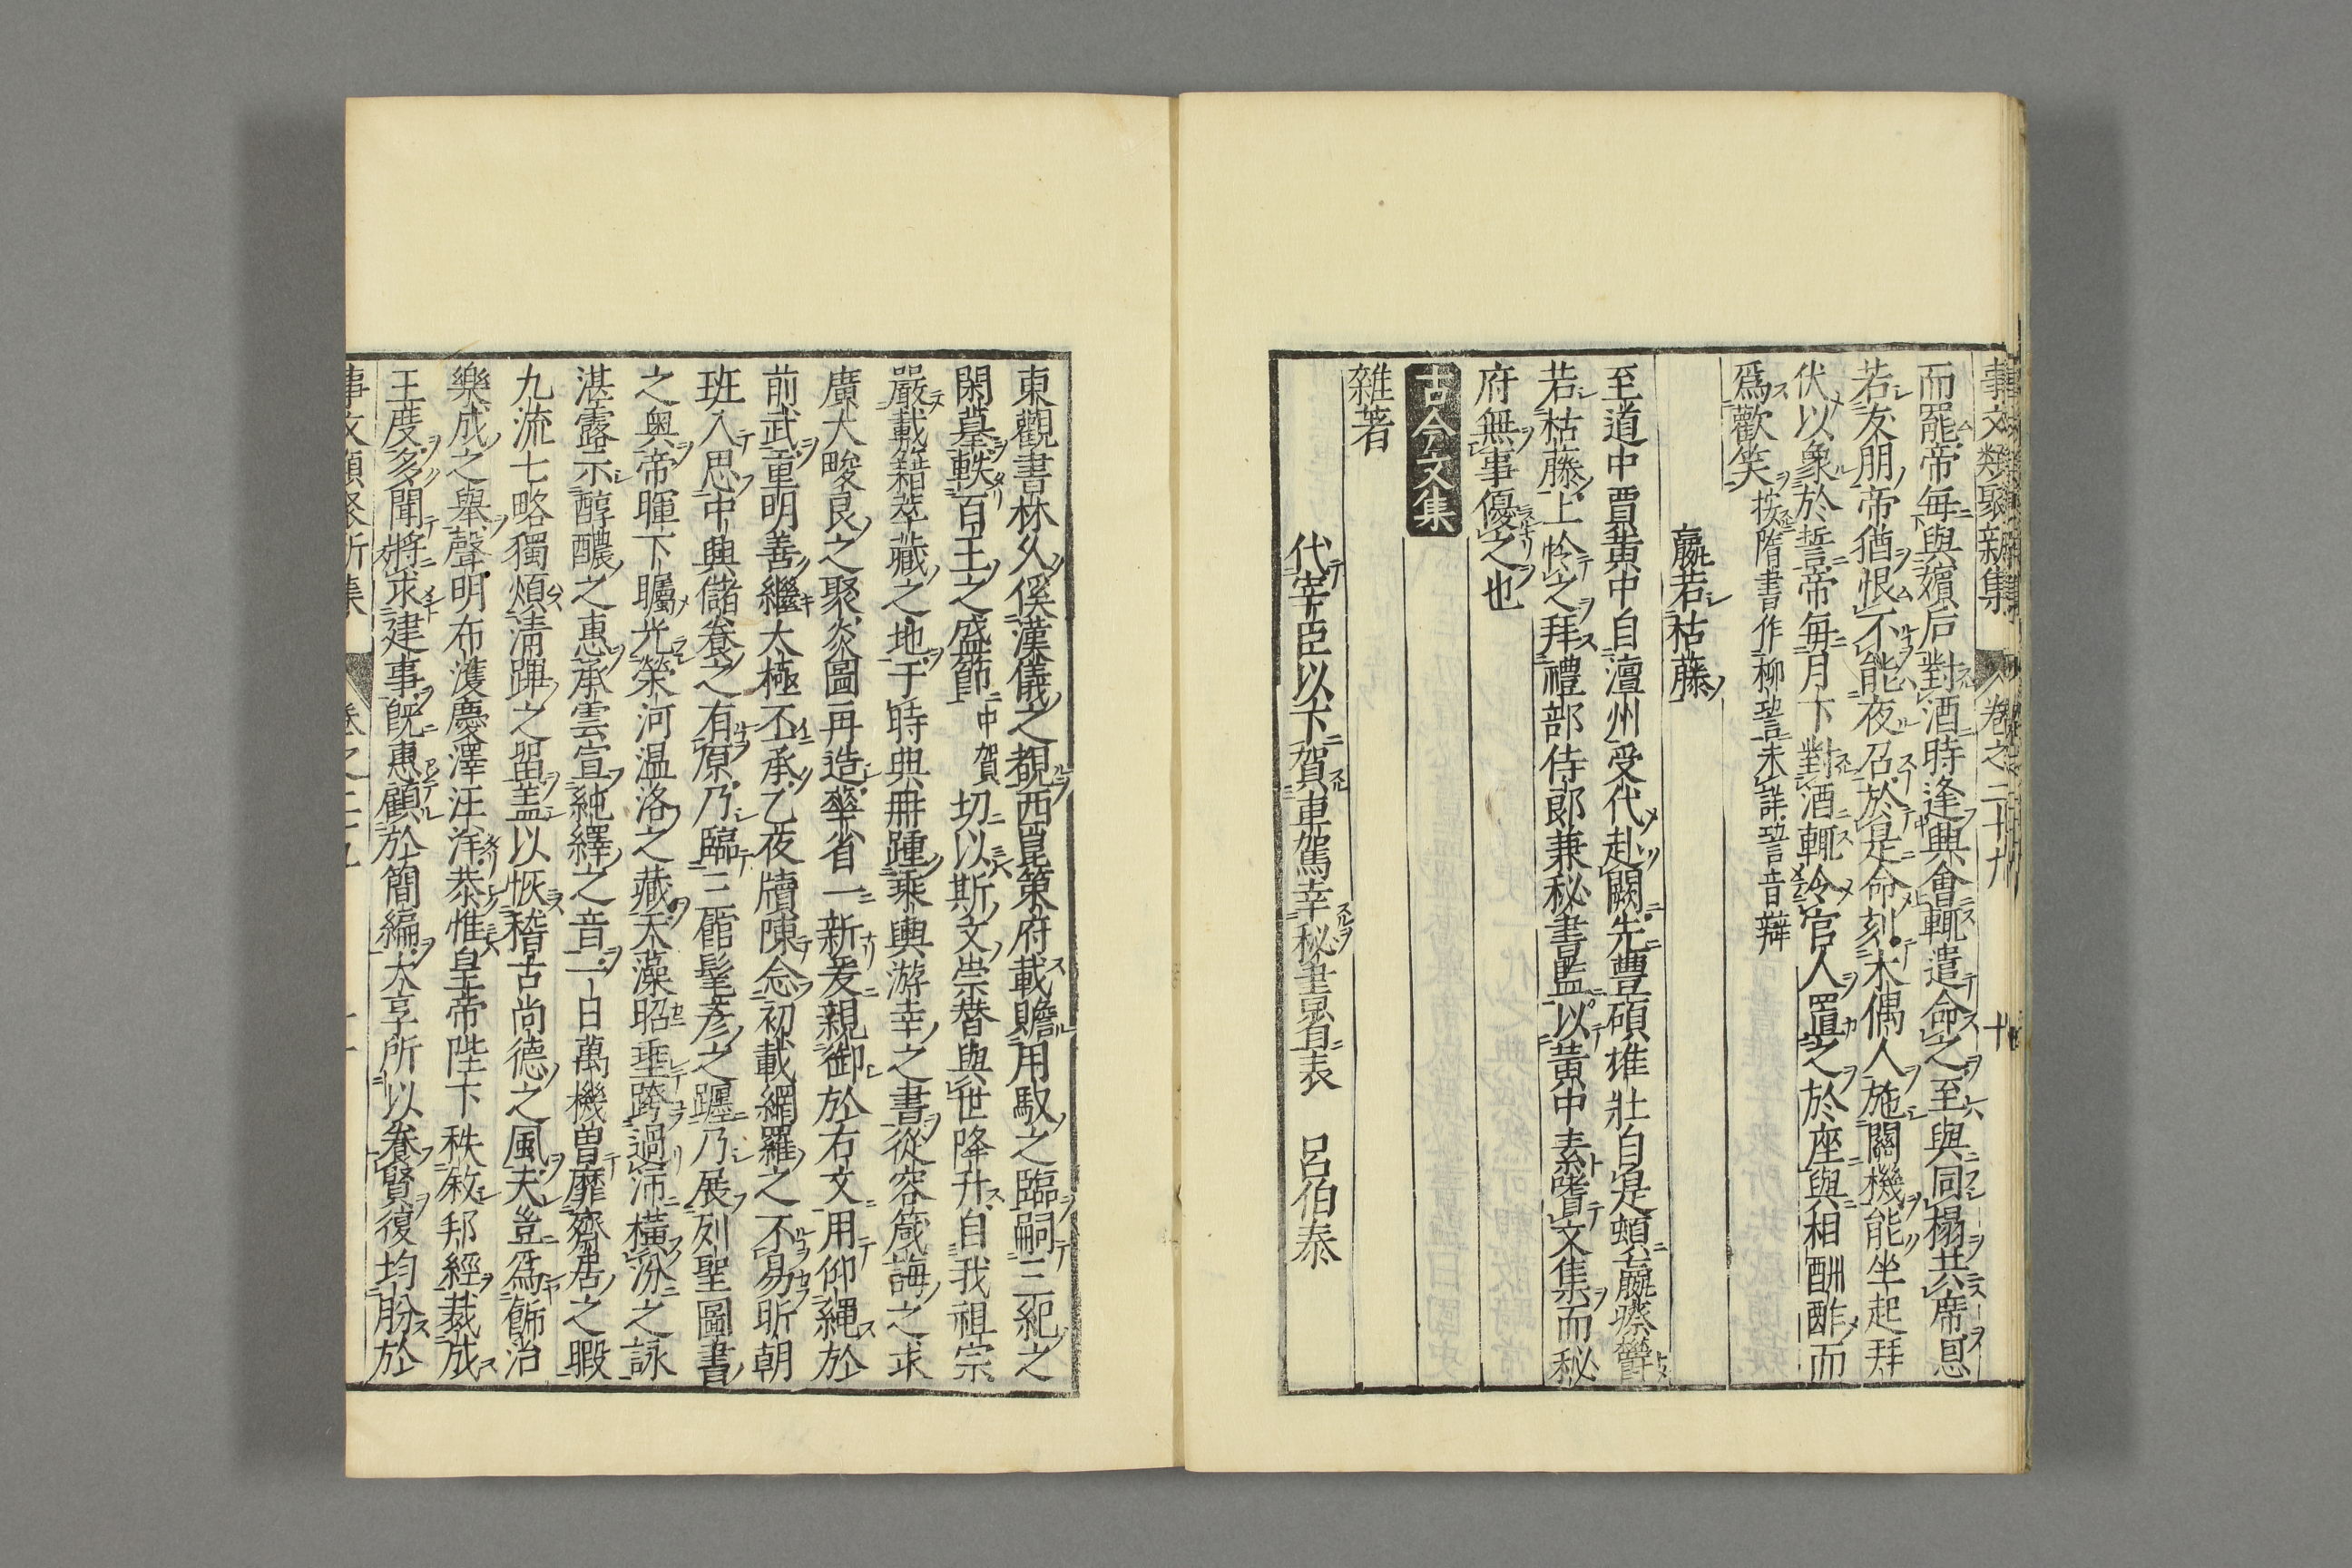 事文類聚新集 卷之二十九 十
而罷帝每與嬪后對酒時逢興會輒遣命之至與同榻共席恩
若友朋帝猶恨不能夜召於是命刻木偶人施關機能坐起拜
伏以象於䛒帝每月下對酒輒令宮人置之於座與相酬酢而
爲歡笑 按隋書作柳䛒未詳䛒音辯
羸若枯藤
至道中賈黄中自澶州受代赴闕先豐碩雄壯自是頓羸瘵欝
若枯藤上怜之拜禮部侍郎兼秘書監以黄中素嗜文集而秘
府無事優之也
古今文集
雜著
代宰臣以下賀車駕幸秘書省表 呂伯泰
東觀書林久傒漢儀之覩西崑策府載贍用馭之臨嗣三紀之
閑墓軼百王之盛節 中賀 切以斯文崇替與世降升自我祖宗
嚴載籍萃藏之地于時典冊踵乘輿游幸之書從容箴誨之求
廣大畯良之聚炎圖再造華省一新爰親御於右文用仰繩於
前武重明善繼大極丕承乙夜牘陳念初載網羅之不易昕朝
班入思中興儲養之有原乃臨三館髦彦之躔乃展列聖圖書
之奥帝暉下矚光榮河温洛之藏天藻昭垂跨過沛橫汾之詠
湛露示醇醲之惠承雲宣純繹之音一日萬機曽靡齋居之暇
九流七略獨煩清蹕之留盖以恢稽古尚德之風夫豈爲飾治
樂成之舉聲明布濩慶澤汪洋恭惟皇帝陛下秩敘邦經裁成
王度多聞將求建事旣惠顧於簡編大享所以養賢復均肦於
事文類聚新集 卷之二十九